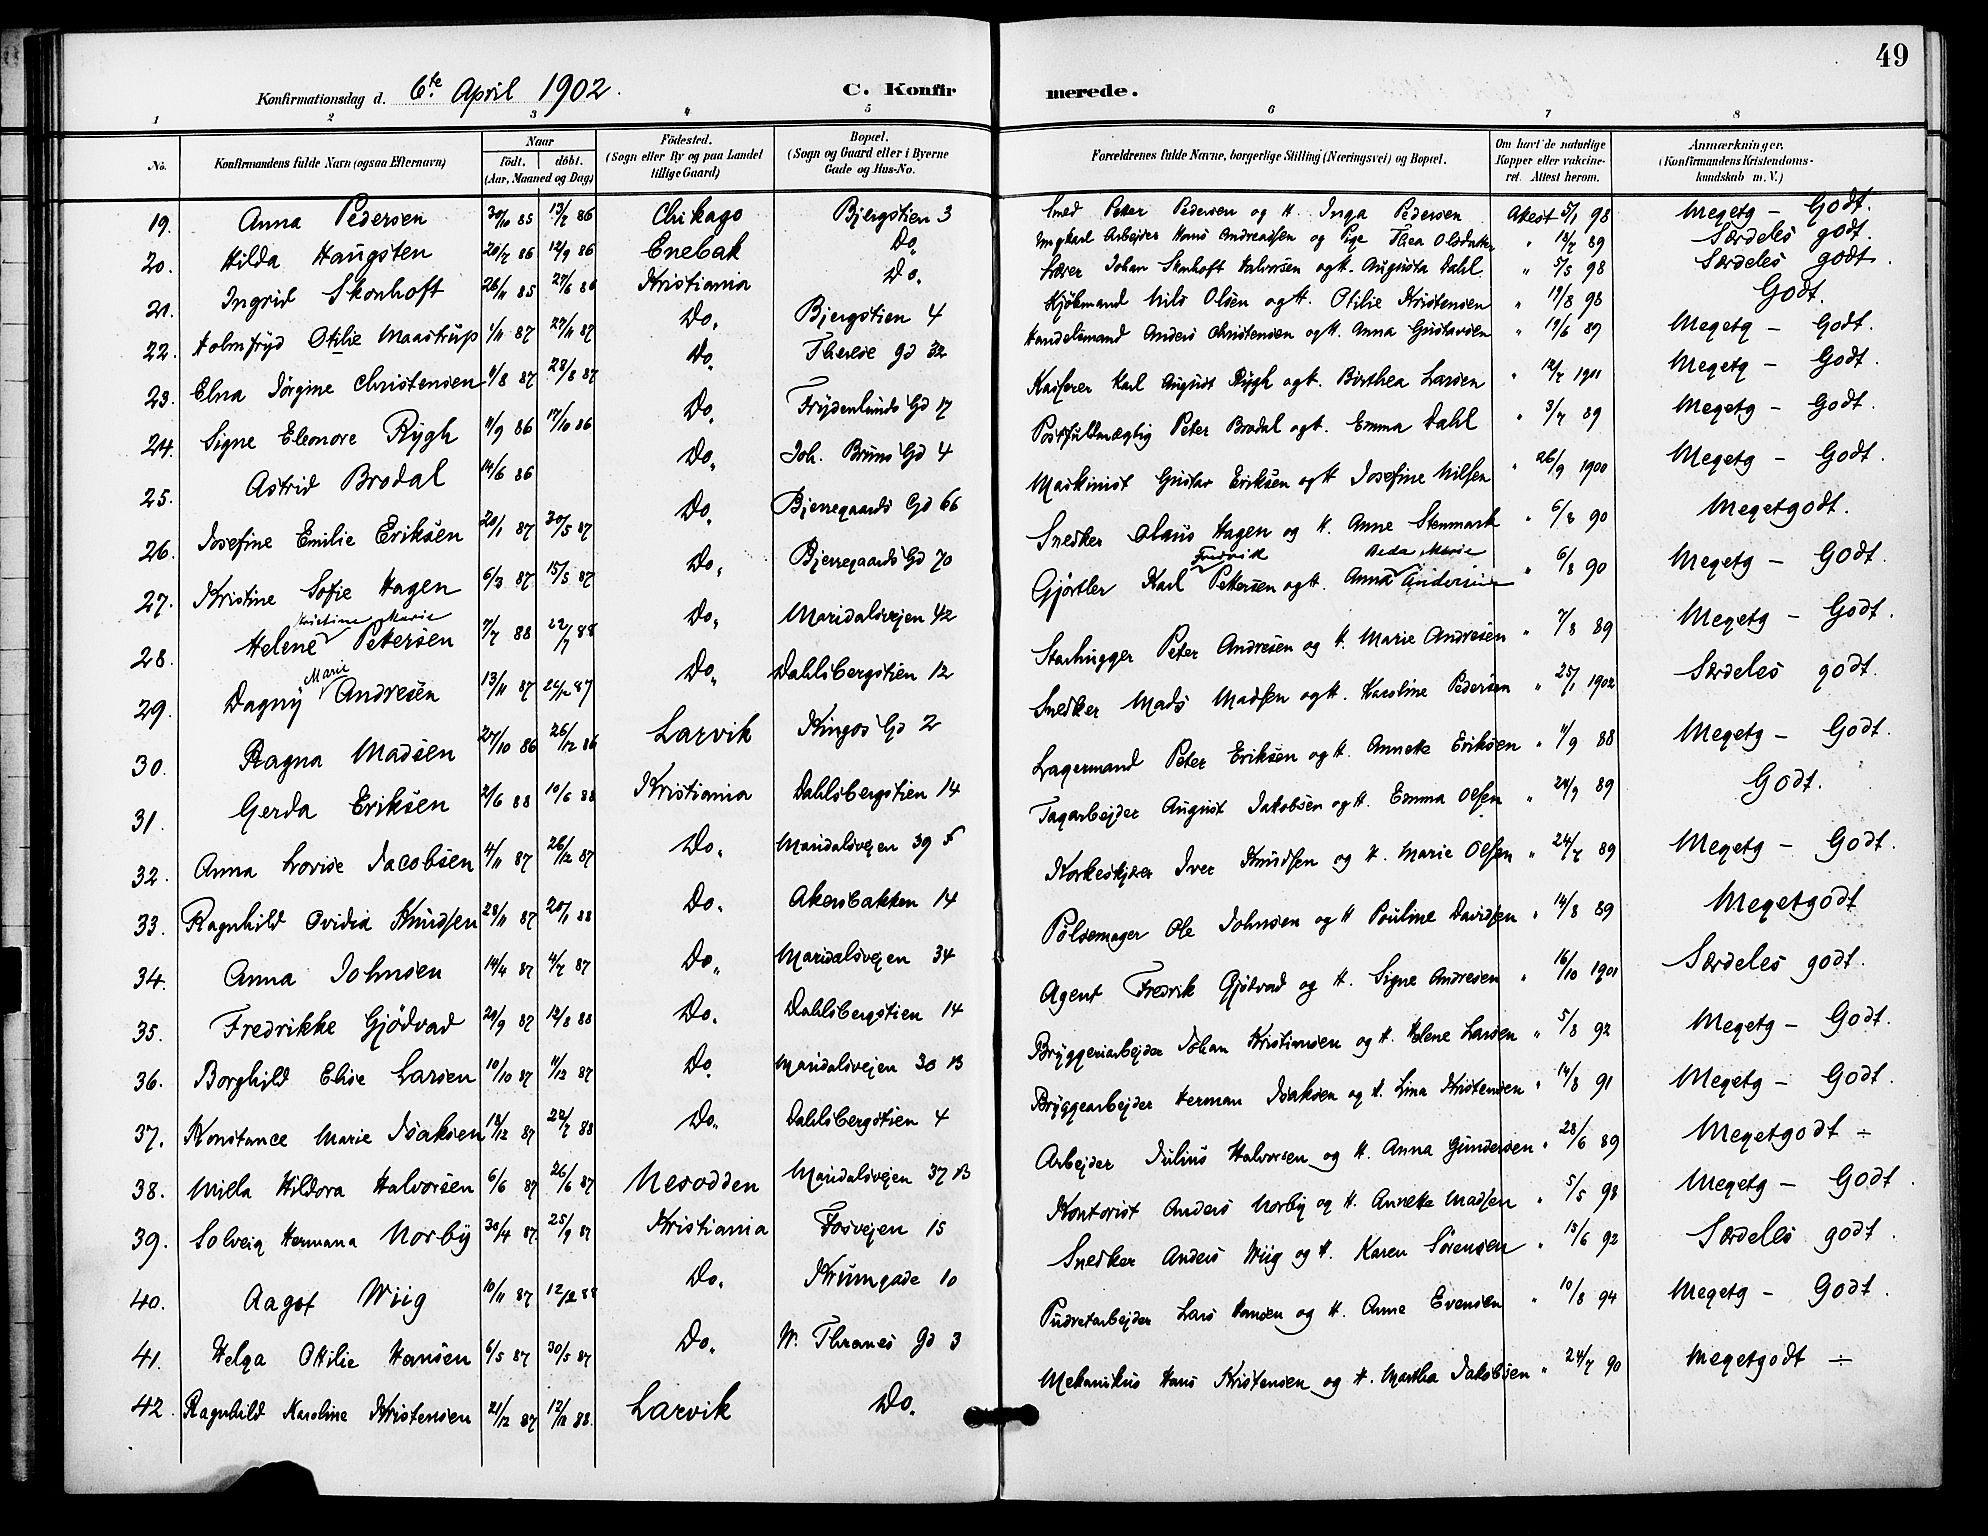 49
Konfirmationsdag d. 6te April 1902.
C. Konfir merede.
1 2 3 4 5 6 7 8
No. Konfirmandens fulde Navn (ogsaa Efternavn) Naar født. døbt. (Aar, Maaned og Dag) Fødested. (Sogn eller By og paa Landet tillige Gaard) Bopæl. (Sogn og Gaard eller i Byerne Gade og Hus-No. Forældrenes fulde Navne, borgerlige Stilling (Næringsvei) og Bopæl. Om havt de naturlige Kopper eller vaccineret. Attest herom. Anmærkninger. (Konfirmandens Kristendomskundskab m. V.)
19. Anna Pedersen 30/10 85 13/2 86 Chikago Bjergstien 3 Smed Peter Pedersen og H. Inga Pedersen Atest 5/1 98 Megetg - Godt.
20. Hilda Haugsten 20/7 86 12/9 86 Enebak Do. Ungkarl Arbejder Hans Andreassen og Pige Thea Olsdatter " 13/7 89 Særdeles godt.
21. Ingrid Skonhoft 26/11 85 27/6 86 Kristiania Do. Lærer Johan Skonhoft Halvorsen og H. Augusta Dahl. " 5/5 98 Særdeles godt.
22. Holmfryd Otilie Maastrup 1/11 87 27/11 87 Do. Bjergstien 4 Kjøbmand Nils Olsen og H. Otilie Kristensen " 19/8 98 Godt.
23. Elna Jørgine Christensen 4/8 87 28/8 87 Do. Therese gd 32 Handelsmand Anders Christensen og H. Anna Gustavsen " 19/6 89 Megetg - Godt.
24. Signe Eleonore Rygh 11/9 86 17/10 86 Do. Frydenlunds Gd 17 Karl August Rygh og H. Birthea Larsen " 12/7 1901 Megetg - Godt.
25. Astrid Brodal 14/6 86 Do. Joh. Bruns Gd 4 Postfuldmægtig Peter Brodal og H. Emma Dahl " 3/7 89 Megetg - Godt.
26. Josefine Emilie Eriksen 20/1 87 30/5 87 Do. Bjerregaards Gd 66 Maskinist Gustav Eriksen og H Josefine Nilsen " 26/9 1900 Megetg - Godt.
27. Kristine Sofie Hagen 6/3 87 15/5 87 Do. Bjerregaards Gd 70 Snedker Olaus Hagen og H. Anne Stenmark " 6/8 90 Megetgodt.
28. Helene Kristine Marie Petersen 7/7 88 22/7 88 Do. Maridalsvejen 42 Gjørtler Karl Fredrik Pettersen og H. Anna Beda Marie Andersine " 6/8 90 Megetg - Godt.
29. Dagny Marie Andresen 13/11 87 26/12 87 Do. Dahlsbergstien 12 Stenhugger Peter Andresen og H. Marie Andresen " 7/8 89 Megetg - Godt.
30. Ragna Madsen 27/10 86 26/12 86 Larvik Kingos Gd 2 Snedker Mads Madsen og H. Karoline Pedersen " 25/1 1902 Særdeles godt.
31. Gerda Eriksen 2/6 88 10/6 88 Kristiania Dahlsbergstien 14 Lagermand Peter Eriksen og H. Annette Eriksen " 11/9 88 Megetg - Godt.
32. Anna Lovise Jacobsen 4/11 87 26/12 87 Do. Maridalsvejen 39 F Tagarbejder August Jakobsen og H. Emma Olsen " 24/9 89 Godt.
33. Ragnhild Ovidia Knudsen 28/11 87 20/1 88 Do. Akersbakken 14 Korkeskjærer Iver Knudsen og H. Marie Olsen " 24/7 89 Megetg - Godt.
34. Anna Johnsen 14/4 87 4/7 87 Do. Maridalsvejen 34 Pølsemager Ole Johnsen og H Pauline Davidsen " 14/8 89 Megetgodt
35. Fredrikke Gjødvad 29/9 87 12/8 88 Do. Dahlsbergstien 14 Agent Fredrik Gjødvad og H. Signe Andresen " 16/10 1901 Særdeles godt.
36. Borghild Elise Larsen 10/10 87 11/12 87 Do. Maridalsvejen 30 B Bryggeriarbejder Johan Kristiansen og H. Helene Larsen " 5/8 92 Megetg - Godt.
37. Konstance Marie Isaksen 12/12 87 22/7 88 Do. Dahlsbergstien 4 Bryggearbejder Herman Isaksen og H. Lina Kristensen " 14/8 91 Megetg - Godt.
38. Milla Hildora Halvorsen 6/6 87 26/6 87 Nesodden Maridalsvejen 37 B Arbejder Julius Halvorsen og H. Anna Gundersen " 28/6 89 Megetgodt ÷
39. Solveig Hermana Norby 30/4 87 25/9 87 Kristiania Fosvejen 15 Kontorist Anders Norby og H. Annette Madsen " 5/5 98 Megetg - Godt.
40. Aagot Wiig 10/11 87 12/2 88 Do. Krumgade 10 Snedker Anders Wiig og H. Karen Sørensen " 15/6 92 Særdeles godt.
41. Helga Otilie Hansen 6/5 87 30/5 87 Do. W. Thranes gd 3 Pudretarbejder Lars Hansen og H. Anne Evensen " 10/8 94 Megetg - Godt.
42. Ragnhild Karoline Kristensen 21/12 87 12/2 88. Larvik Do. Mekanikus Hans Kristensen og H. Martha Jakobsen " 24/7 90 Megetgodt ÷